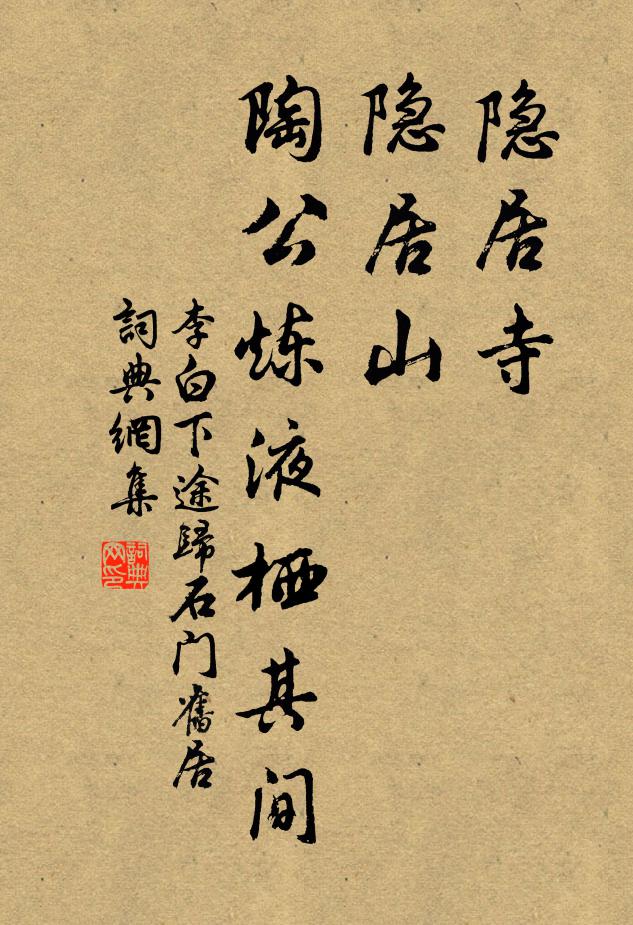 隐居寺
隐居山
陶公炼液栖其间
李白下途歸石门舊居
詞典網集
詞典
网印